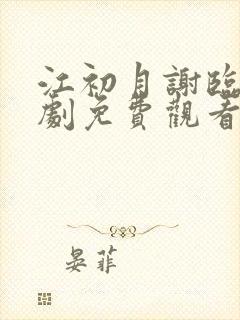 江初月謝臨
劇免費觀看
晏菲